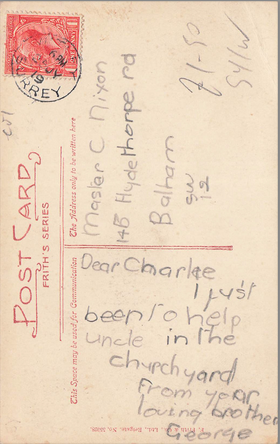 POST CARD
FRITH'S SERIES
This Space may be used for Communication
The Address only to be written here
SURREY
£1-50
S41W
Master C Nixon
14B Hydethorpe rd
Balham
SW
12
Dear Charlie
I just
been to help
uncle in the
churchyard
From your
loving brother
George